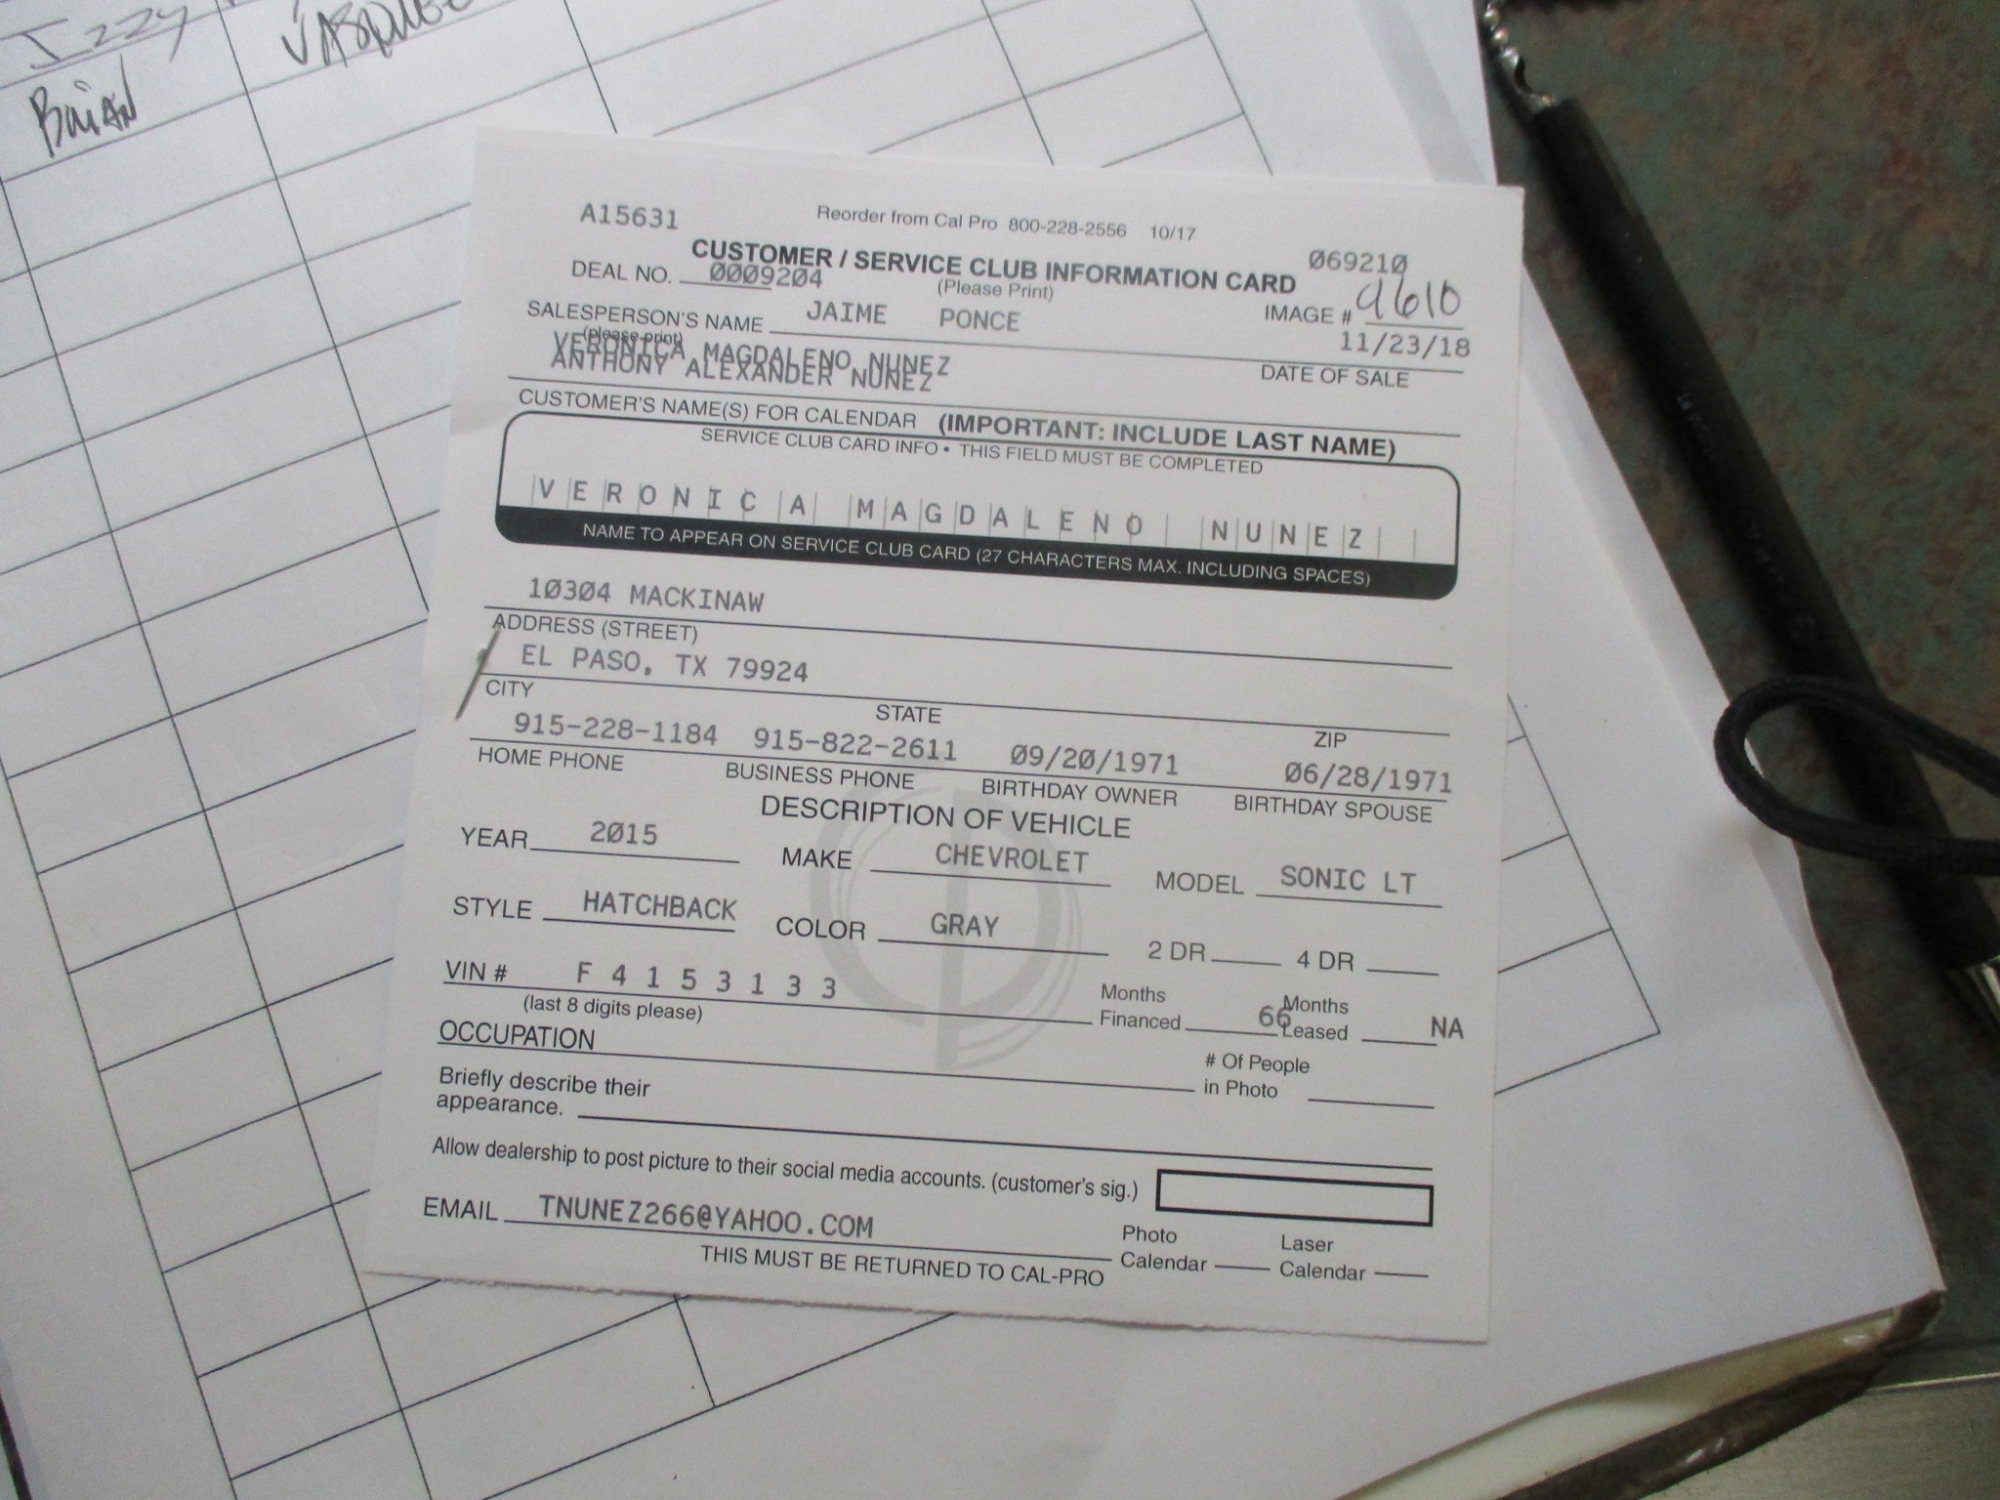 Izzy
Brian
A15631
Reorder from Cal Pro 800-228-2556 10/17
CUSTOMER / SERVICE CLUB INFORMATION CARD
069210
DEAL NO. 0009204
(Please Print)
IMAGE # 9610
SALESPERSON'S NAME JAIME PONCE
(please print)
11/23/18
VERONICA MAGDALENO NUNEZ
ANTHONY ALEXANDER NUNEZ
DATE OF SALE
CUSTOMER'S NAME(S) FOR CALENDAR (IMPORTANT: INCLUDE LAST NAME)
SERVICE CLUB CARD INFO • THIS FIELD MUST BE COMPLETED
VERONICA MAGDALENO NUNEZ
NAME TO APPEAR ON SERVICE CLUB CARD (27 CHARACTERS MAX. INCLUDING SPACES)
10304 MACKINAW
ADDRESS (STREET)
EL PASO, TX 79924
CITY STATE ZIP
915-228-1184 915-822-2611 09/20/1971 06/28/1971
HOME PHONE BUSINESS PHONE BIRTHDAY OWNER BIRTHDAY SPOUSE
DESCRIPTION OF VEHICLE
YEAR 2015 MAKE CHEVROLET MODEL SONIC LT
STYLE HATCHBACK COLOR GRAY 2 DR 4 DR
VIN # F 4 1 5 3 1 3 3
(last 8 digits please)
Months Financed 66 Months Leased NA
OCCUPATION
# Of People in Photo
Briefly describe their
appearance.
Allow dealership to post picture to their social media accounts. (customer's sig.)
EMAIL TNUNEZ266@YAHOO.COM
Photo Calendar Laser Calendar
THIS MUST BE RETURNED TO CAL-PRO